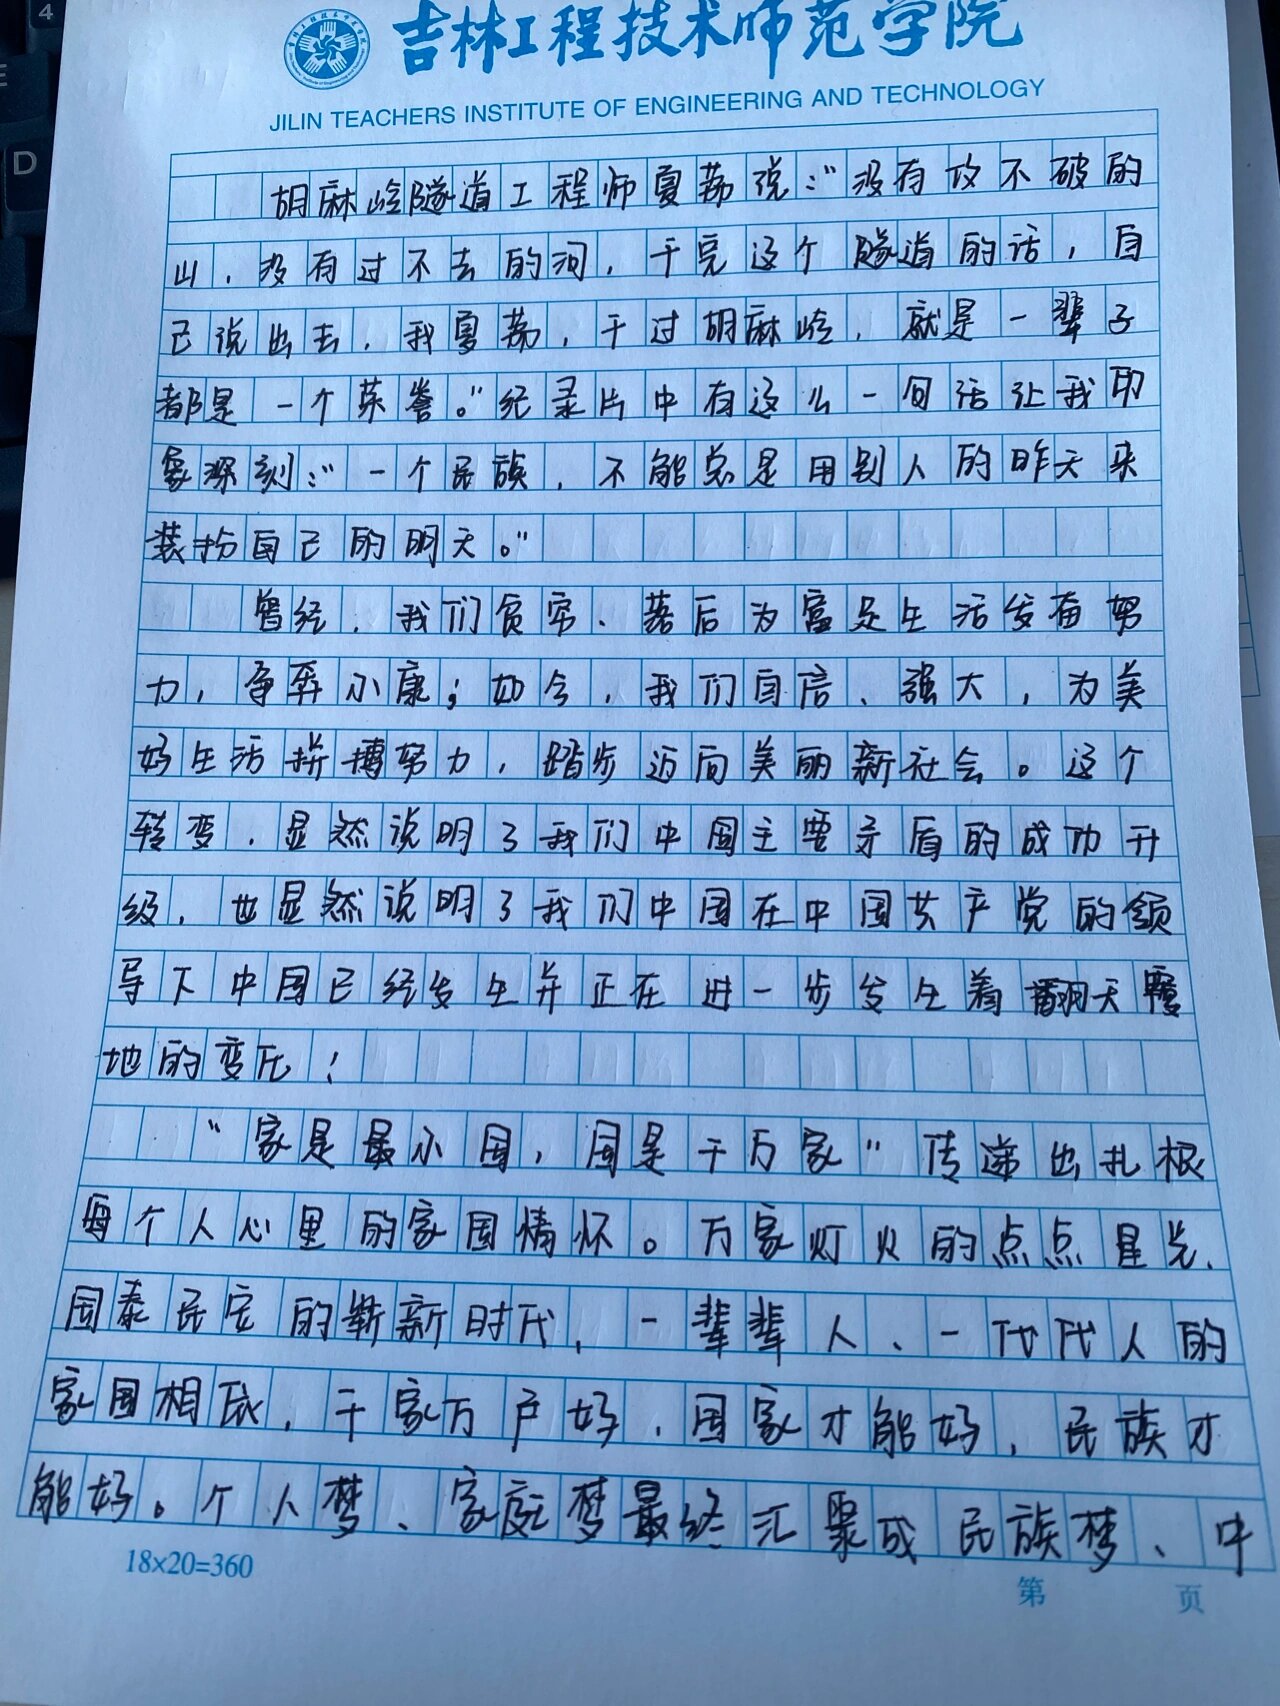 4
E
D
吉林工程技术师范学院
JILIN TEACHERS INSTITUTE OF ENGINEERING AND TECHNOLOGY
胡麻岭隧道工程师夏荔说:“没有攻不破的
山,没有过不去的河,干完这个隧道的话,自
己说出去,我夏荔,干过胡麻岭,就是一辈子
都是一个荣誉。”纪录片中有这么一句话让我印
象深刻:“一个民族,不能总是用别人的昨天来
装扮自己的明天。”
曾经,我们贫穷、落后为富足生活发奋努
力,争奔小康;如今,我们自信、强大,为美
好生活拼搏努力,踏步迈向美丽新社会。这个
转变,显然说明了我们中国主要矛盾的成功升
级,也显然说明了我们中国在中国共产党的领
导下中国已经发生并正在进一步发生着翻天覆
地的变化!
“家是最小国,国是千万家”传递出扎根
每个人心里的家国情怀。万家灯火的点点星光,
国泰民安的崭新时代,一辈辈人、一代代人的
家国相依,千家万户好,国家才能好,民族才
能好。个人梦、家庭梦最终汇聚成民族梦、中
18×20=360
第 页